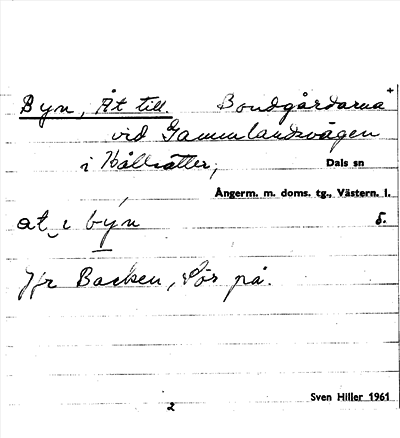 Byn, Åt till. Bondgårdarna
vid Gammlandsvägen
i Hällsätter, Dals sn
Ångerm. m. doms. tg., Västern. l.
at i byn 5.
Jfr Backen, Sör på.
Sven Hiller 1961
2